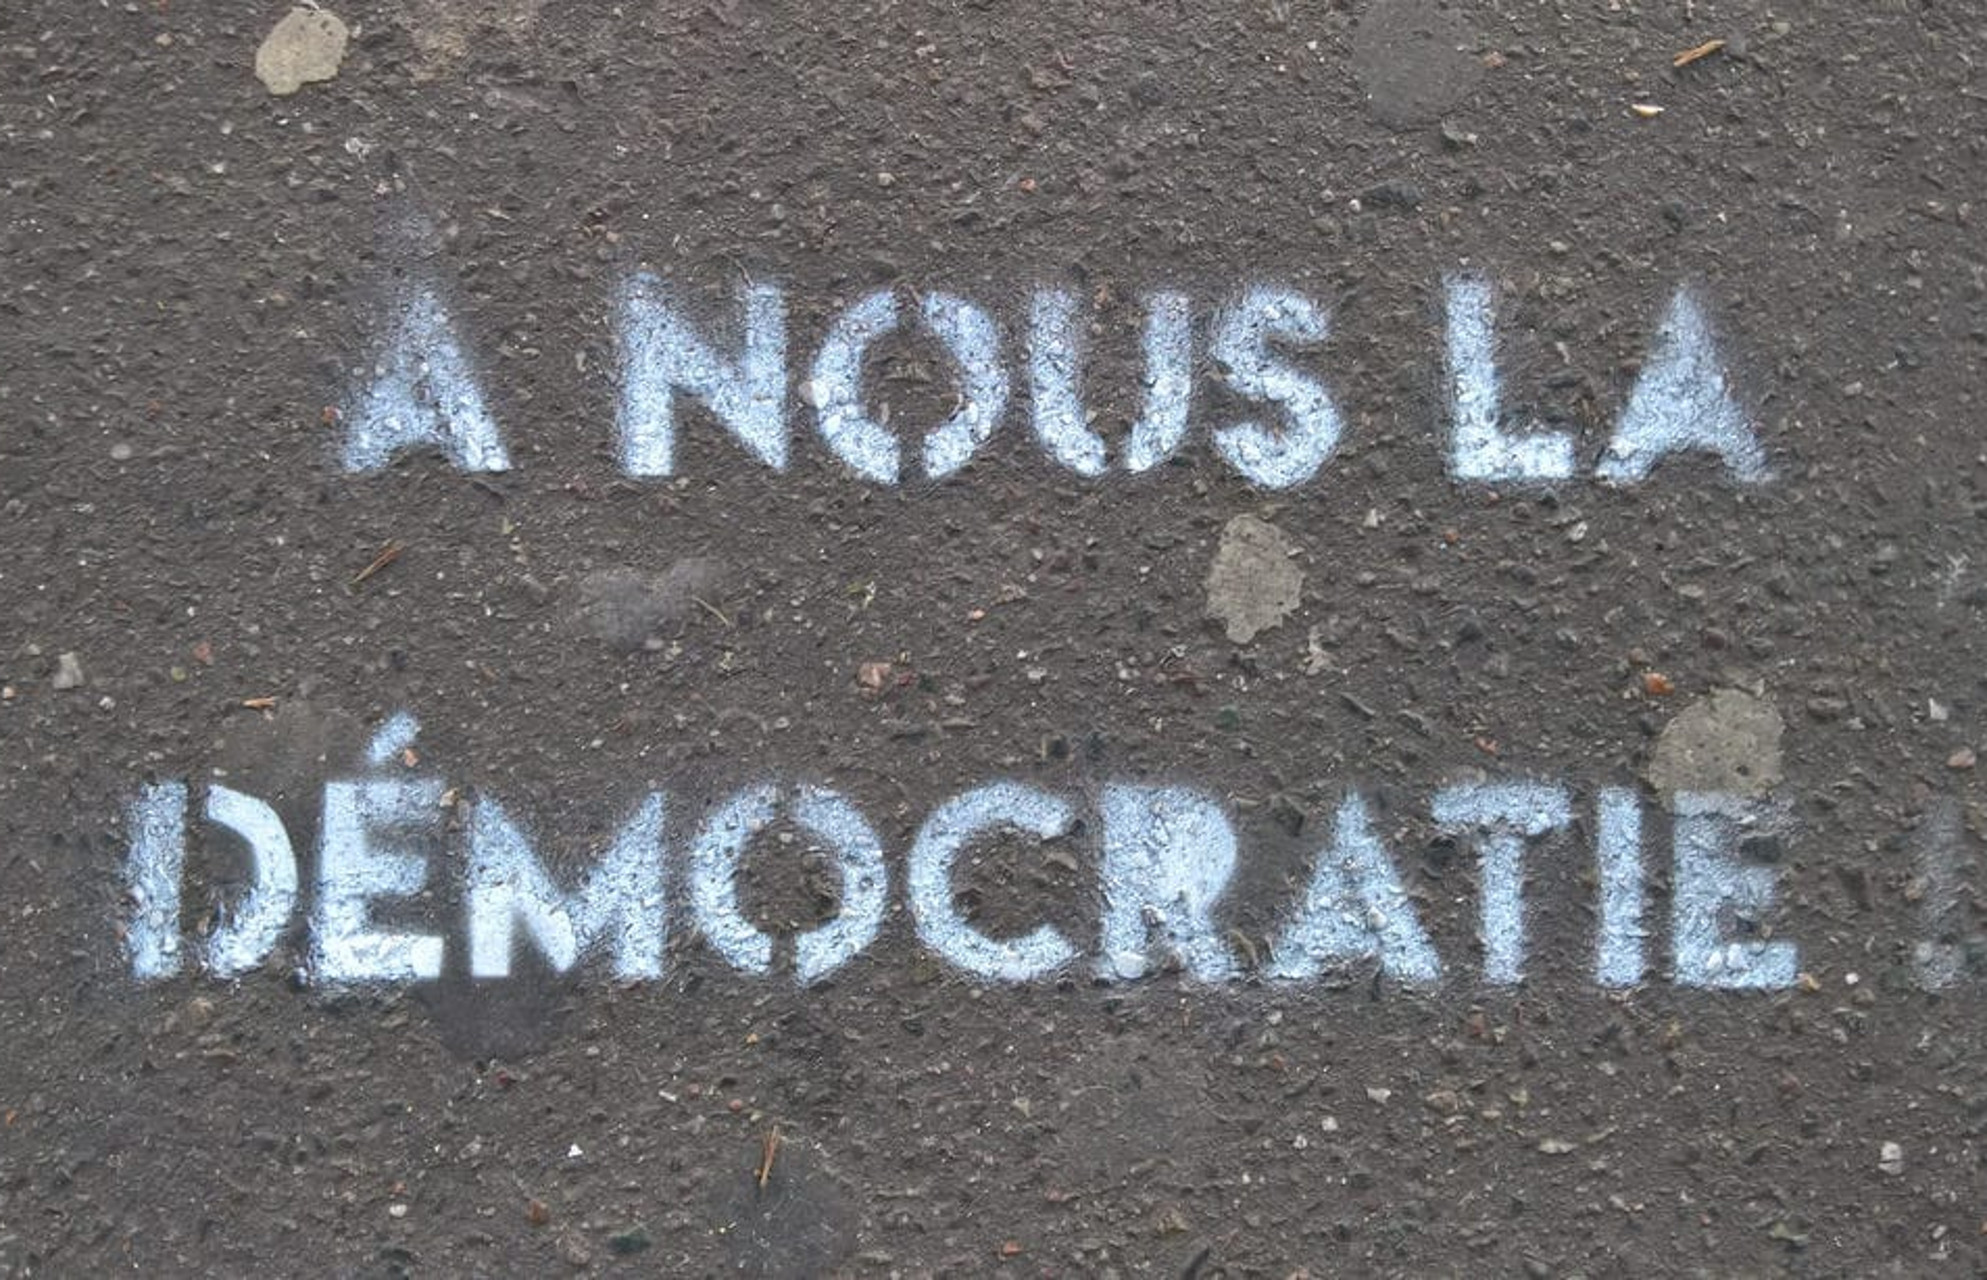 À NOUS LA
DÉMOCRATIE !